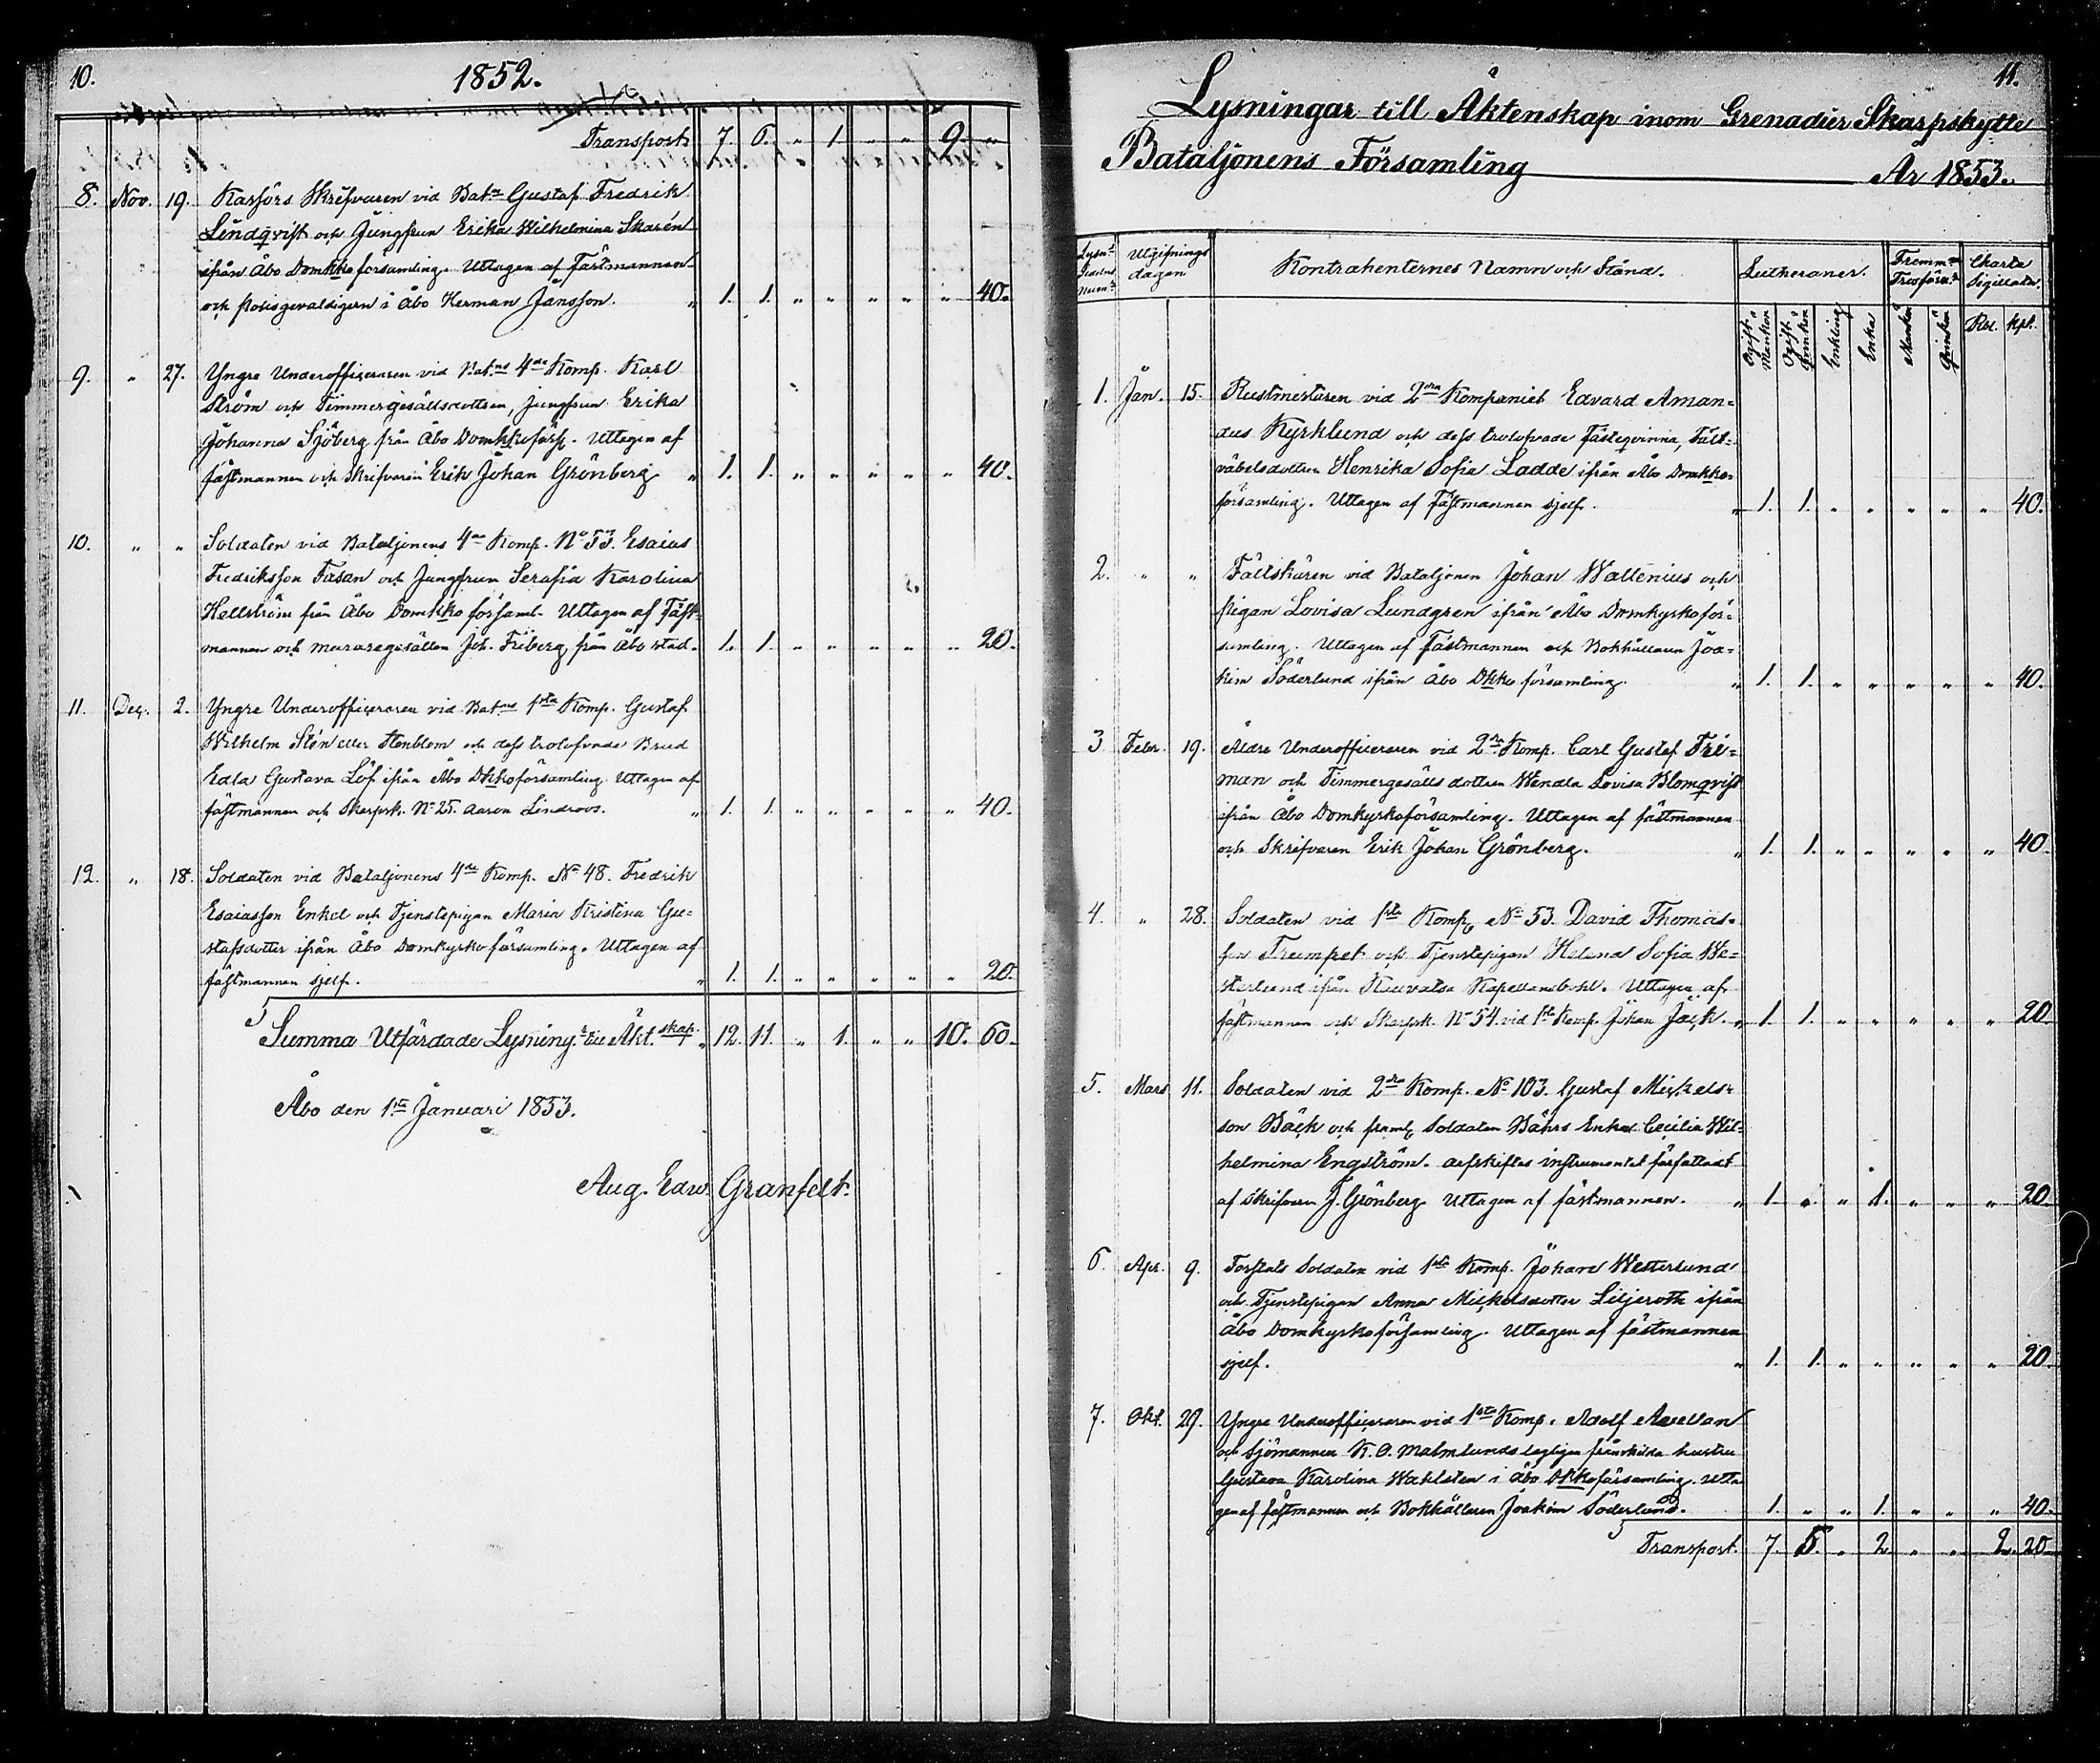 10.
1852.
Transport 7. 6. " 1. " " 9. "
8. Nov. 19. Karförs Skrifvaren vid Bat:n Gustaf Fredrik
Lindqvist och Jungfrun Erika Wilhelmina Skarén
ifrån Åbo Domkko församling. Uttagen af Fästmannen
och polisgevaldigern i Åbo Herman Jansson. " 1. 1. " " " " " 40.
9. " 27. Yngre Underofficeraren vid Bat:ns 4de Komp. Karl
Ström och Timmergesällsdottren, Jungfrun Erika
Johanna Sjöberg från Åbo Domkkoförs. Uttagen af
fästmannen och Skrifvaren Erik Johan Grönberg " 1. 1. " " " " " 40.
10. " " Soldaten vid Bataljonens 4de Komp. No 53. Esaias
Fredriksson Fasan och Jungfrun Serafia Karolina
Hellström från Åbo Domkko församl. Uttagen af Fäst-
mannen och muraregesällen Joh. Friberg, från Åbo stad. 1. 1. " " " " " 20.
11. Dec. 2. Yngre Underofficeraren vid Bat:ns 1sta Komp. Gustaf
Wilhelm Stén eller Stenblom och dess trolofvade Brud
Edla Gustava Löf ifrån Åbo Dkkoförsamling. Uttagen af
fästmannen och Skarpsk. No 25. Aaron Lindroos. " 1. 1. " " " " " 40.
12. " 18. Soldaten vid Bataljonens 4de Komp. No 48. Fredrik
Esaiasson Enkel och Tjenstepigan Maria Kristina Gu-
stafsdotter ifrån Åbo Domkyrko församling. Uttagen af
fästmannen sjelf. " 1. 1. " " " " " 20.
Summa Utfärdade Lysning:r till Äkt.skap. " 12. 11. " 1. " " 10. 60.
Åbo den 1sta Januari 1853.
Aug. Edw. Granfelt.
11.
Lysningar till Äktenskap inom Grenadier Skarpskytte
Bataljonens Församling År 1853.
Lysn:s Sedelns Num:r Utgifnings dagen Kontrahenternes Namn och Stånd. Lutheraner. Fremm:e Trosförv:r Charta Sigillata.
Ogift Mankön Ogift Qvinkön Enkling Enka Mankön Qvinkön Rbl. Kp.
1. Jan. 15. Rustmestaren vid 2dra Kompaniet Edvard Aman-
dus Kyrklund och dess trolofvade Fästeqvinna, Fält-
väbelsdottren Henrika Sofia Ladde ifrån Åbo Domkko-
församling. Uttagen af Fästmannen sjelf. " 1. 1. " " " " " 40.
2. " " Fältskären vid Bataljonen Johan Wallenius och
pigan Lovisa Lundgren ifrån Åbo Domkyrkoför-
samling. Uttagen af Fästmannen och Bokhållaren Joa-
kim Söderlund ifrån Åbo Dkko församling. " 1. 1. " " " " " 40.
3 Febr. 19. Äldre Underofficeraren vid 2dra Komp. Carl Gustaf Fri-
man och Timmergesälls dottren Wendla Lovisa Blomqvist
ifrån Åbo Domkyrkoförsamling. Uttagen af fästmannen
och Skrifvaren Erik Johan Grönberg. " 1. 1. " " " " " 40.
4. " 28. Soldaten vid 1sta Komp. No 53. David Thomas-
son Trumpet och Tjenstepigan Helena Sofia We-
sterlund ifrån Kauvatsa Kapellansbohl. Uttagen af
fästmannen och Skarpsk. No 54 vid 1sta Komp. Johan Jäck. " 1. 1. " " " " " 20.
5. Mars 11. Soldaten vid 2dra Komp. No 103. Gustaf Mickels-
son Bäck och framl. Soldaten Bährs Enka Cecilia Wil-
helmina Engström. Arfskiftes instrumentet författadt
af Skrifvaren J. Grönberg. Uttagen af fästmannen. " 1. " " 1. " " " 20.
6. Apr. 9. Forstats Soldaten vid 1sta Komp. Johan Westerlund
och Tjenstepigan Anna Mickelsdotter Liljeroth ifrån
Åbo Domkyrkoförsamling. Uttagen af fästmannen
sjelf. " 1. 1. " " " " " 20.
7. Okt. 29. Yngre Underofficeraren vid 1sta Komp. Adolf Avellan
och Sjömannen K. O. Malmlunds lagligen frånskilda hustru
Gustava Karolina Wahlsten i Åbo Dkkoförsamling. Utta-
gen af fästmannen och Bokhållaren Joakim Söderlund. 1. " " 1. " " " 40.
Transport. 7. 5. " 2. " " 2. 20.